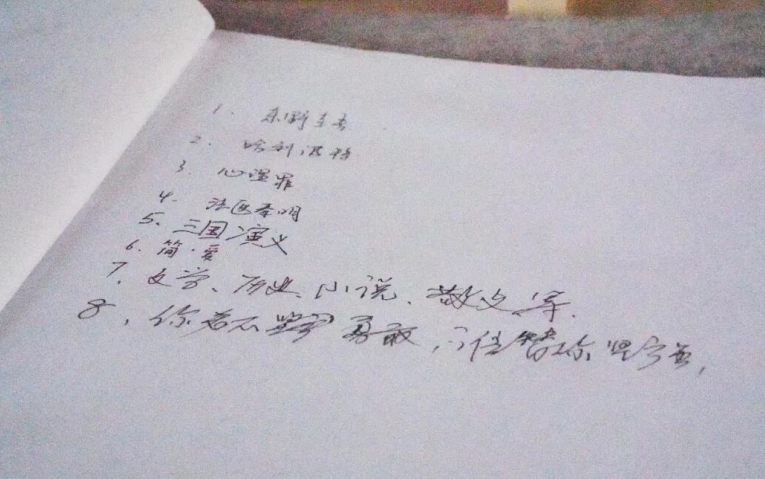 1. 东野圭吾
2. 哈利波特
3. 心理罪
4. 法医秦明
5. 三国演义
6. 简·爱
7. 文学、历史、小说、散文等.
8, 你若不勇敢,谁替你坚强,